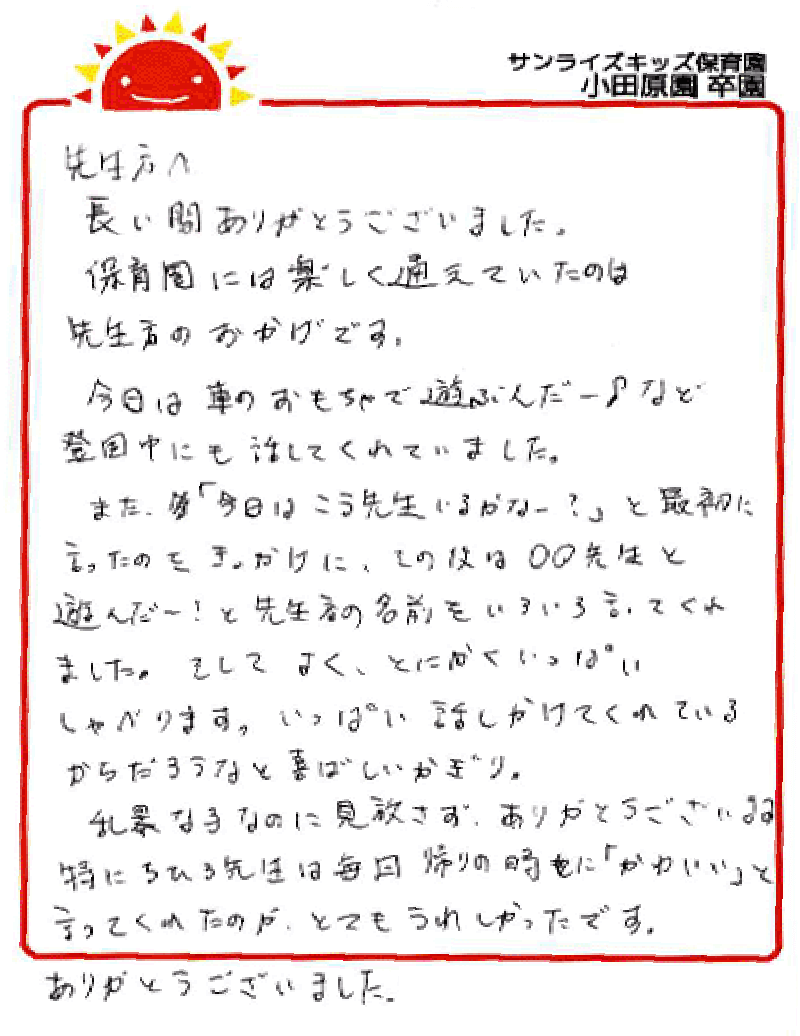 サンライズキッズ保育園
小田原園 卒園
先生方へ
長い間ありがとうございました。
保育園には楽しく通えていたのは
先生方のおかげです。
今日は車のおもちゃで遊ぶんだー♪など
登園中にも話してくれていました。
また、「今日はこう先生いるかなー?」と最初に
言ったのをきっかけに、その後は〇〇先生と
遊んだー!と先生方の名前をいろいろ言ってくれ
ました。そして よく、とにかくいっぱい
しゃべります。いっぱい話しかけてくれている
からだろうなと喜ばしいかぎり。
乱暴な子なのに見放さず、ありがとうございます
特にちひろ先生は毎回帰りの時もに「かわいい」と
言ってくれたのが、とてもうれしかったです。
ありがとうございました。